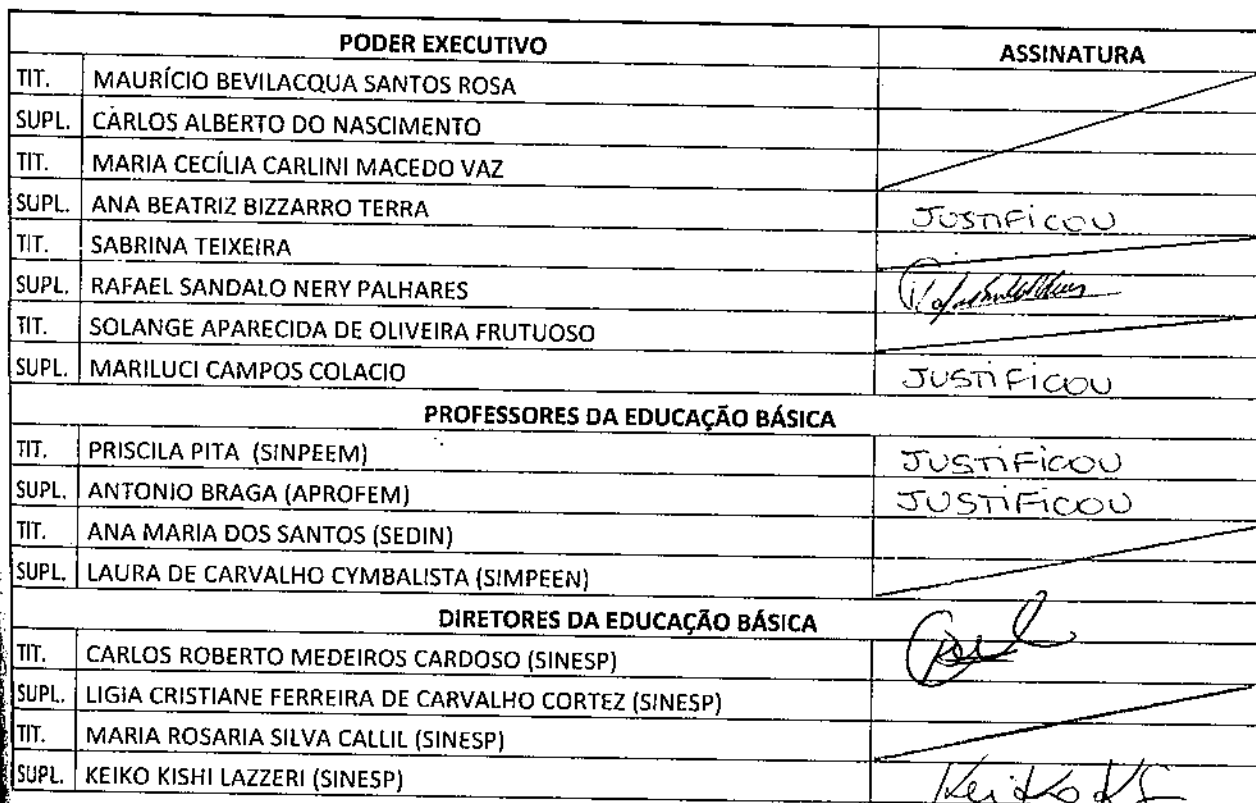 PODER EXECUTIVO ASSINATURA
TIT. MAURÍCIO BEVILACQUA SANTOS ROSA
SUPL. CARLOS ALBERTO DO NASCIMENTO
TIT. MARIA CECÍLIA CARLINI MACEDO VAZ
SUPL. ANA BEATRIZ BIZZARRO TERRA JUSTIFICOU
TIT. SABRINA TEIXEIRA
SUPL. RAFAEL SANDALO NERY PALHARES
TIT. SOLANGE APARECIDA DE OLIVEIRA FRUTUOSO
SUPL. MARILUCI CAMPOS COLACIO JUSTIFICOU
PROFESSORES DA EDUCAÇÃO BÁSICA
TIT. PRISCILA PITA (SINPEEM) JUSTIFICOU
SUPL. ANTONIO BRAGA (APROFEM) JUSTIFICOU
TIT. ANA MARIA DOS SANTOS (SEDIN)
SUPL. LAURA DE CARVALHO CYMBALISTA (SIMPEEN)
DIRETORES DA EDUCAÇÃO BÁSICA
TIT. CARLOS ROBERTO MEDEIROS CARDOSO (SINESP)
SUPL. LIGIA CRISTIANE FERREIRA DE CARVALHO CORTEZ (SINESP)
TIT. MARIA ROSARIA SILVA CALLIL (SINESP)
SUPL. KEIKO KISHI LAZZERI (SINESP) Keiko